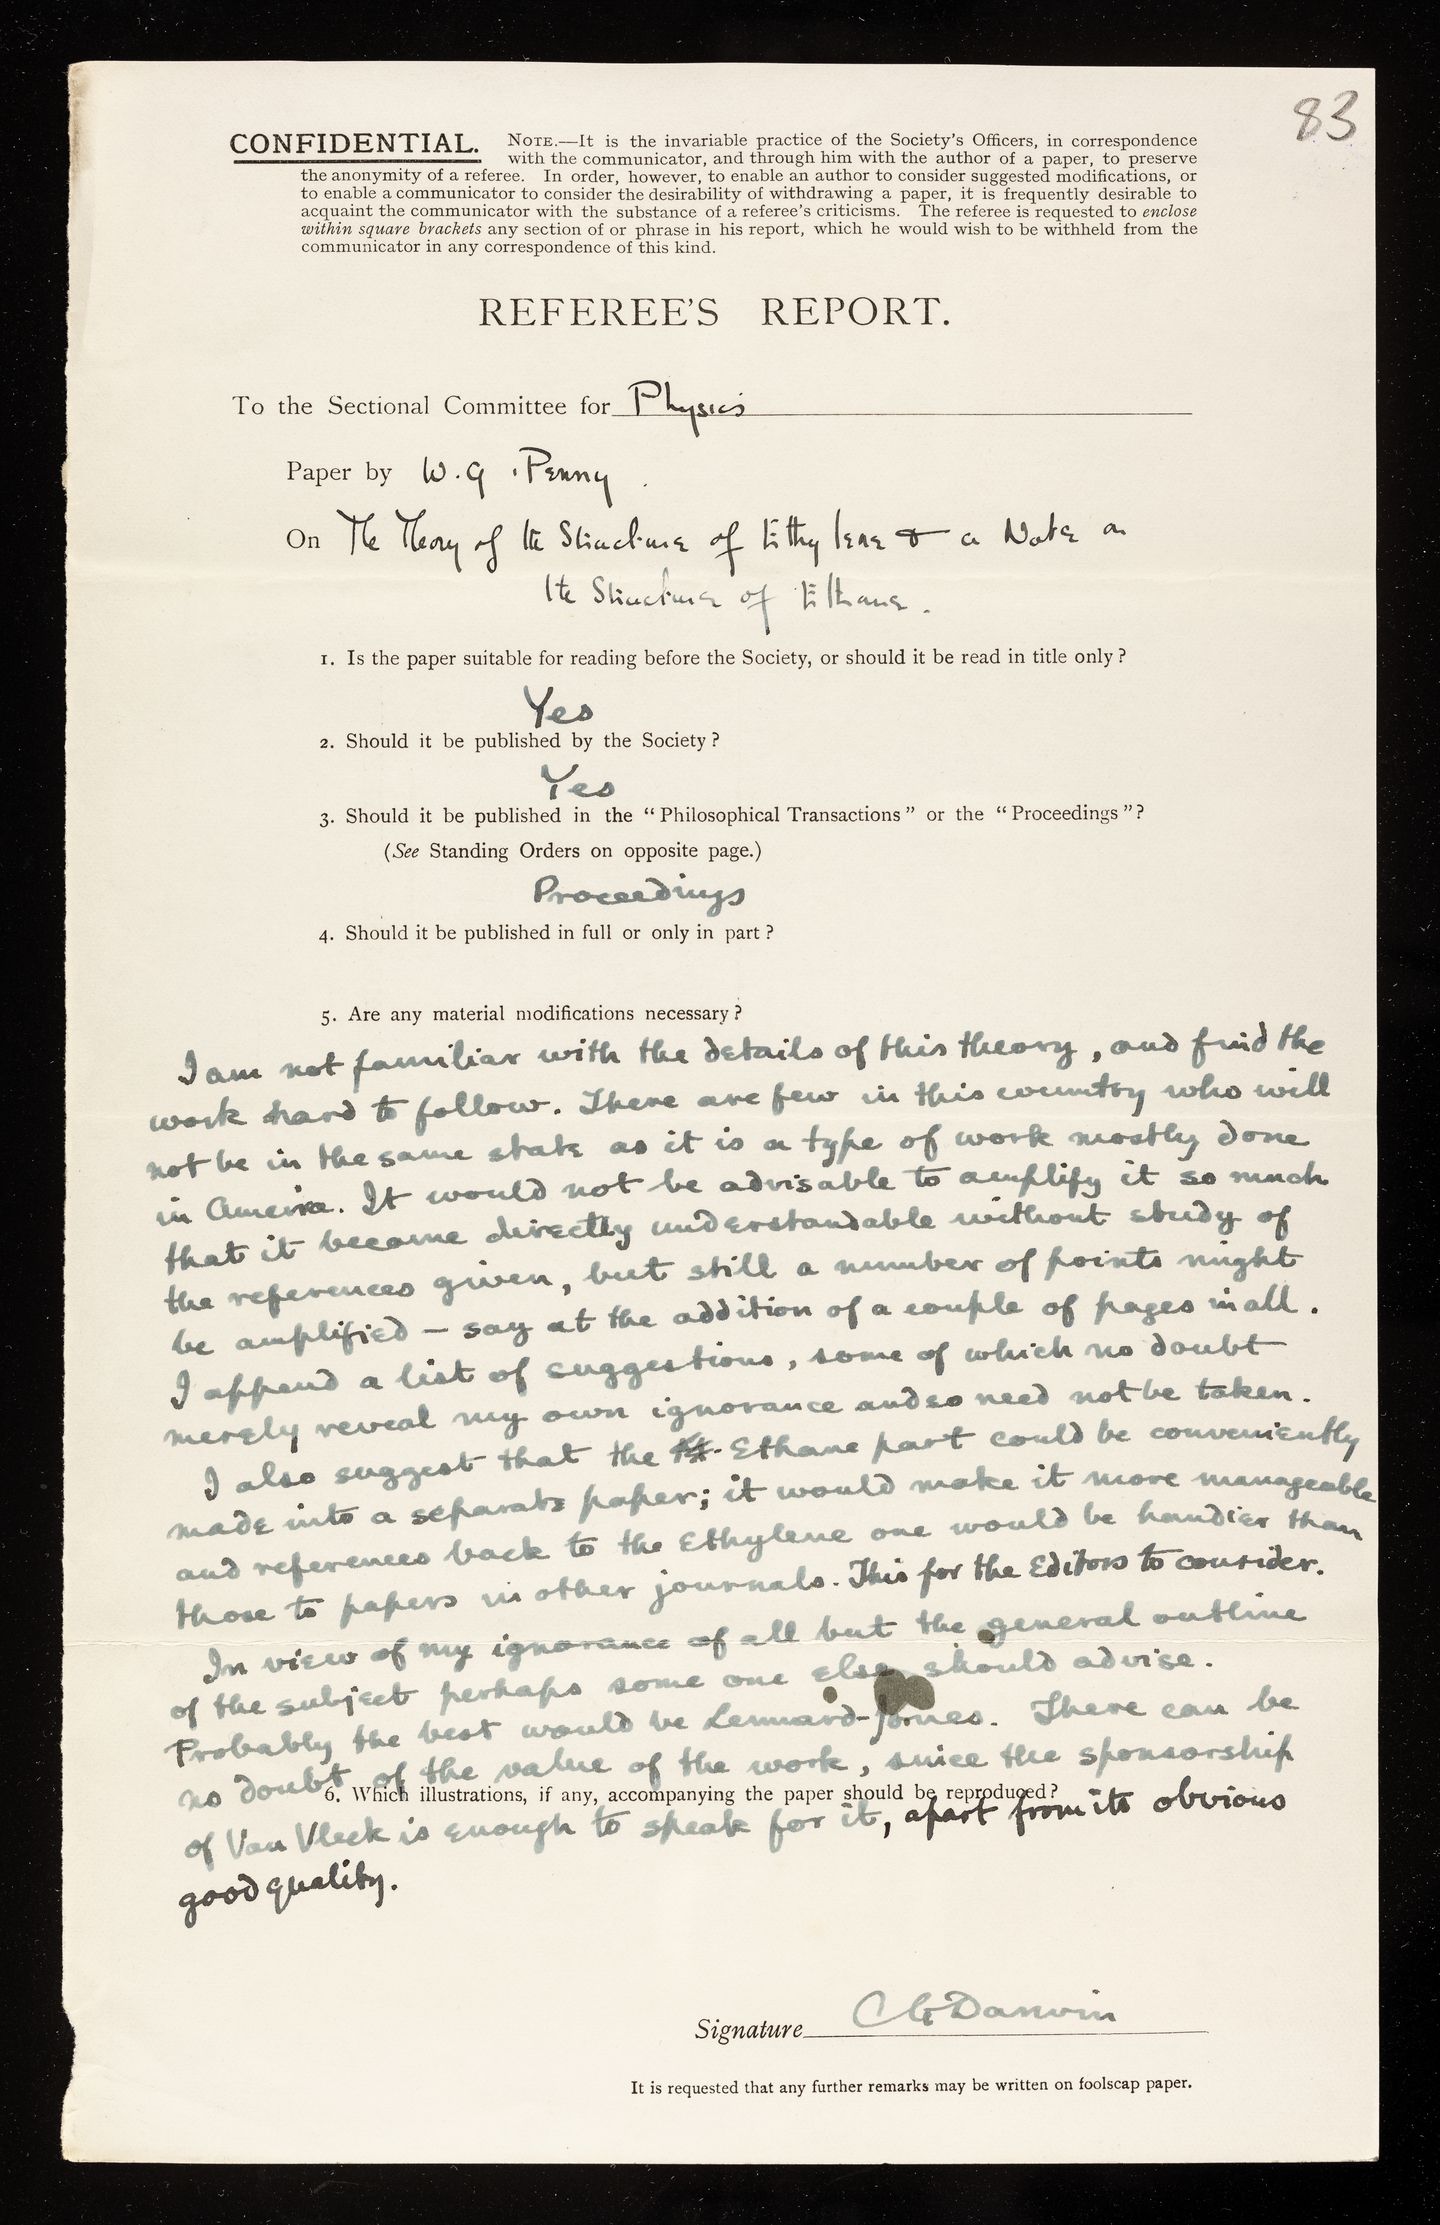 83
CONFIDENTIAL. NOTE.—It is the invariable practice of the Society's Officers, in correspondence
with the communicator, and through him with the author of a paper, to preserve
the anonymity of a referee. In order, however, to enable an author to consider suggested modifications, or
to enable a communicator to consider the desirability of withdrawing a paper, it is frequently desirable to
acquaint the communicator with the substance of a referee's criticisms. The referee is requested to enclose
within square brackets any section of or phrase in his report, which he would wish to be withheld from the
communicator in any correspondence of this kind.
REFEREE'S REPORT.
To the Sectional Committee for Physics
Paper by W. G. Penny.
On The Theory of the Structure of Ethylene & a Note on
the Structure of Ethane.
1. Is the paper suitable for reading before the Society, or should it be read in title only?
Yes
2. Should it be published by the Society?
Yes
3. Should it be published in the "Philosophical Transactions" or the "Proceedings"?
(See Standing Orders on opposite page.)
Proceedings
4. Should it be published in full or only in part?
5. Are any material modifications necessary?
I am not familiar with the details of this theory, and find the
work hard to follow. There are few in this country who will
not be in the same state as it is a type of work mostly done
in America. It would not be advisable to amplify it so much
that it became directly understandable without study of
the references given, but still a number of points might
be amplified — say at the addition of a couple of pages in all.
I append a list of suggestions, some of which no doubt
merely reveal my own ignorance and so need not be taken.
I also suggest that the Ethane part could be conveniently
made into a separate paper; it would make it more manageable
and references back to the Ethylene one would be handier than
those to papers in other journals. This for the Editors to consider.
In view of my ignorance of all but the general outline
of the subject perhaps some one else should advise.
Probably the best would be Lennard-Jones. There can be
no doubt of the value of the work, since the sponsorship
6. Which illustrations, if any, accompanying the paper should be reproduced?
of Van Vleck is enough to speak for it, apart from its obvious
good quality.
Signature C G Darwin
It is requested that any further remarks may be written on foolscap paper.